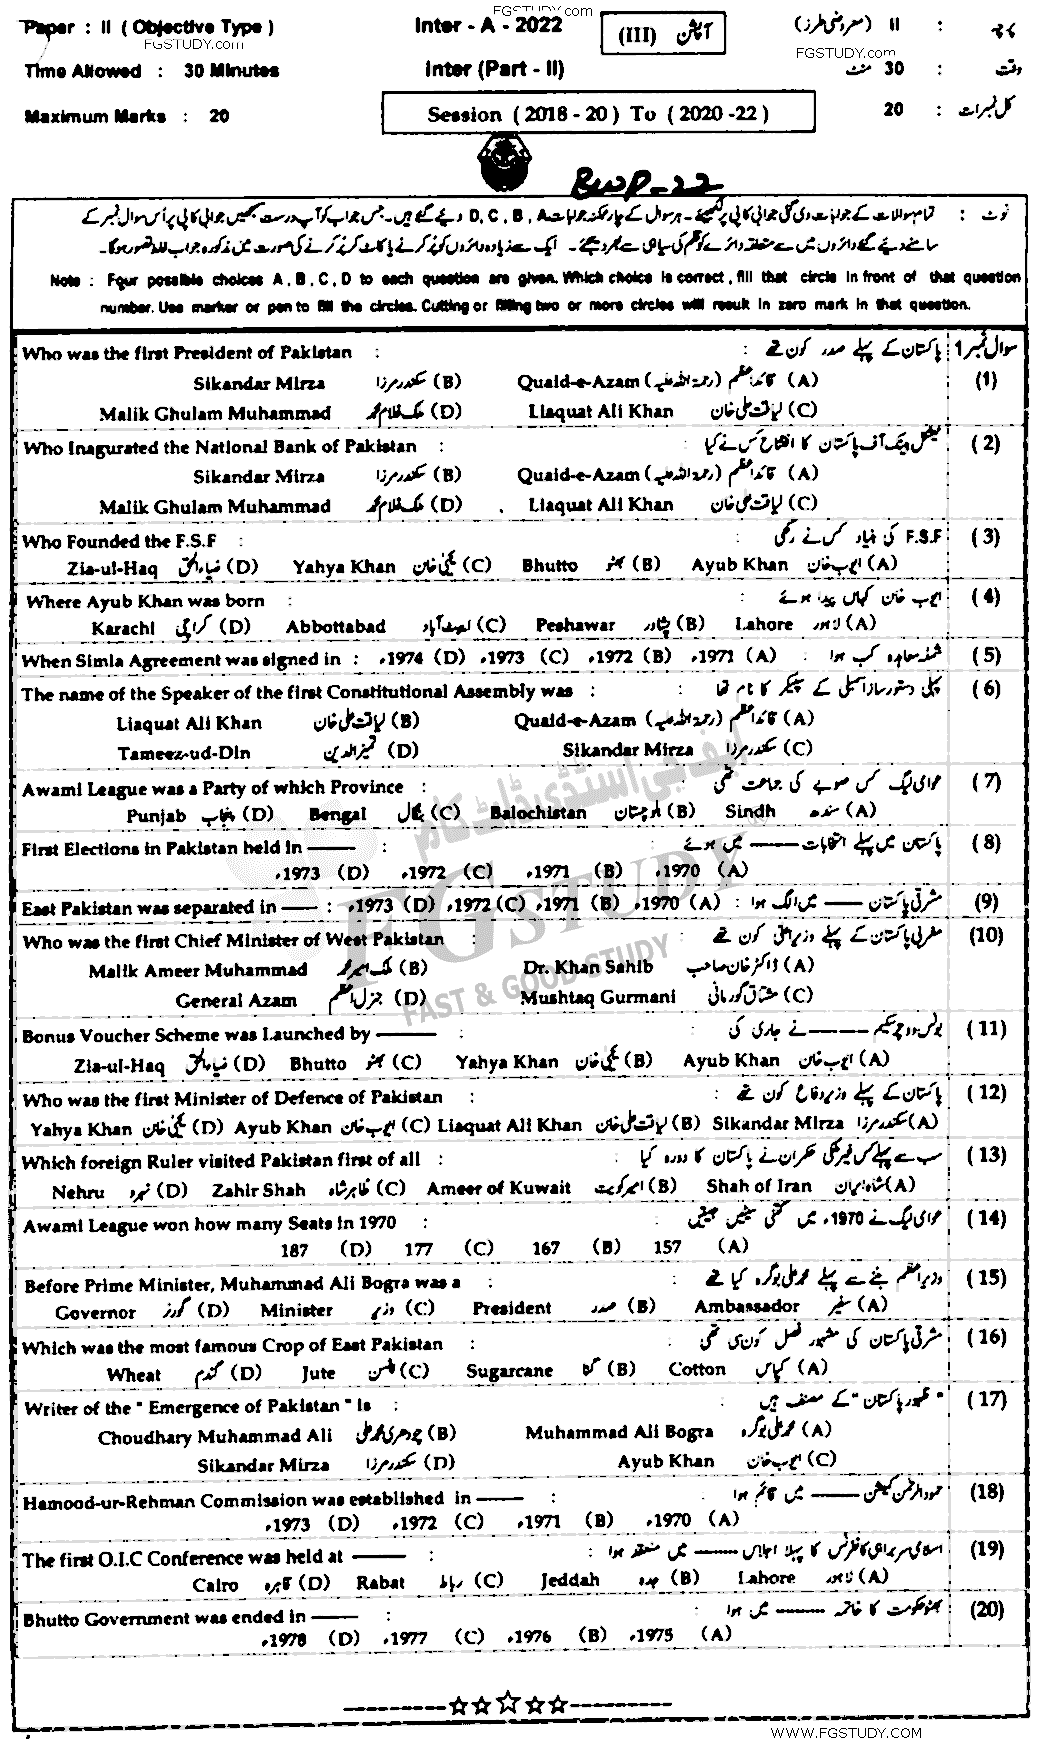 FGSTUDY.com
Paper : II ( Objective Type ) Inter - A - 2022 (III) آپشن پرچہ : II (معروضی طرز)
FGSTUDY.com FGSTUDY.com
Time Allowed : 30 Minutes Inter (Part - II) وقت : 30 منٹ
Maximum Marks : 20 Session ( 2018 - 20 ) To ( 2020 -22 ) کل نمبرات : 20
BWP-22
نوٹ : تمام سوالات کے جوابات دی گئی جوابی کاپی پر لکھیئے۔ ہر سوال کے چار ممکنہ جوابات D, C, B, A دیے گئے ہیں۔ جس جواب کو آپ درست سمجھیں جوابی کاپی پر اُس سوال نمبر کے
سامنے دیے گئے دائروں میں سے متعلقہ دائرے کو قلم کی سیاہی سے بھر دیجئے۔ ایک سے زیادہ دائروں کو پُر کرنے یا کاٹ کر پُر کرنے کی صورت میں مذکورہ جواب غلط تصور ہوگا۔
Note : Four possible choices A , B , C , D to each question are given. Which choice is correct , fill that circle in front of that question
number. Use marker or pen to fill the circles. Cutting or filling two or more circles will result in zero mark in that question.
Who was the first President of Pakistan : پاکستان کے پہلے صدر کون تھے : سوال نمبر 1
Sikandar Mirza سکندر مرزا (B) Quaid-e-Azam (رحمۃ اللہ علیہ) قائد اعظم (A) (1)
Malik Ghulam Muhammad ملک غلام محمد (D) Liaquat Ali Khan لیاقت علی خان (C)
Who Inagurated the National Bank of Pakistan : نیشنل بینک آف پاکستان کا افتتاح کس نے کیا : (2)
Sikandar Mirza سکندر مرزا (B) Quaid-e-Azam (رحمۃ اللہ علیہ) قائد اعظم (A)
Malik Ghulam Muhammad ملک غلام محمد (D) Liaquat Ali Khan لیاقت علی خان (C)
Who Founded the F.S.F : F.S.F کی بنیاد کس نے رکھی : (3)
Zia-ul-Haq ضیاء الحق (D) Yahya Khan یحیٰی خان (C) Bhutto بھٹو (B) Ayub Khan ایوب خان (A)
Where Ayub Khan was born : ایوب خان کہاں پیدا ہوئے : (4)
Karachi کراچی (D) Abbottabad ایبٹ آباد (C) Peshawar پشاور (B) Lahore لاہور (A)
When Simla Agreement was signed in : 1974ء (D) 1973ء (C) 1972ء (B) 1971ء (A) : شملہ معاہدہ کب ہوا (5)
The name of the Speaker of the first Constitutional Assembly was : پہلی دستور ساز اسمبلی کے سپیکر کا نام تھا : (6)
Liaquat Ali Khan لیاقت علی خان (B) Quaid-e-Azam (رحمۃ اللہ علیہ) قائد اعظم (A)
Tameez-ud-Din تمیز الدین (D) Sikandar Mirza سکندر مرزا (C)
Awami League was a Party of which Province : عوامی لیگ کس صوبے کی جماعت تھی : (7)
Punjab پنجاب (D) Bengal بنگال (C) Balochistan بلوچستان (B) Sindh سندھ (A)
First Elections in Pakistan held in —— : پاکستان میں پہلے انتخابات ------ میں ہوئے : (8)
1973ء (D) 1972ء (C) 1971ء (B) 1970ء (A)
East Pakistan was separated in —— : 1973ء (D) 1972ء (C) 1971ء (B) 1970ء (A) : مشرقی پاکستان —— میں الگ ہوا (9)
Who was the first Chief Minister of West Pakistan : مغربی پاکستان کے پہلے وزیر اعلیٰ کون تھے : (10)
Malik Ameer Muhammad ملک امیر محمد (B) Dr. Khan Sahib ڈاکٹر خان صاحب (A)
General Azam جنرل اعظم (D) Mushtaq Gurmani مشتاق گورمانی (C)
Bonus Voucher Scheme was Launched by ——— : بونس ووچر سکیم -------- نے جاری کی : (11)
Zia-ul-Haq ضیاء الحق (D) Bhutto بھٹو (C) Yahya Khan یحیٰی خان (B) Ayub Khan ایوب خان (A)
Who was the first Minister of Defence of Pakistan : پاکستان کے پہلے وزیر دفاع کون تھے : (12)
Yahya Khan یحیٰی خان (D) Ayub Khan ایوب خان (C) Liaquat Ali Khan لیاقت علی خان (B) Sikandar Mirza سکندر مرزا (A)
Which foreign Ruler visited Pakistan first of all : سب سے پہلے کس غیر ملکی حکمران نے پاکستان کا دورہ کیا : (13)
Nehru نہرو (D) Zahir Shah ظاہر شاہ (C) Ameer of Kuwait امیر کویت (B) Shah of Iran شاہ ایران (A)
Awami League won how many Seats in 1970 : عوامی لیگ نے 1970ء میں کتنی سیٹیں جیتیں : (14)
187 (D) 177 (C) 167 (B) 157 (A)
Before Prime Minister, Muhammad Ali Bogra was a : وزیر اعظم بننے سے پہلے محمد علی بوگرہ کیا تھے : (15)
Governor گورنر (D) Minister وزیر (C) President صدر (B) Ambassador سفیر (A)
Which was the most famous Crop of East Pakistan : مشرقی پاکستان کی مشہور فصل کون سی تھی : (16)
Wheat گندم (D) Jute پٹسن (C) Sugarcane گنا (B) Cotton کپاس (A)
Writer of the " Emergence of Pakistan " is : "ظہور پاکستان" کے مصنف ہیں : (17)
Choudhary Muhammad Ali چوہدری محمد علی (B) Muhammad Ali Bogra محمد علی بوگرہ (A)
Sikandar Mirza سکندر مرزا (D) Ayub Khan ایوب خان (C)
Hamood-ur-Rehman Commission was established in —— : حمود الرحمٰن کمیشن —— میں قائم ہوا : (18)
1973ء (D) 1972ء (C) 1971ء (B) 1970ء (A)
The first O.I.C Conference was held at —— : اسلامی سربراہی کانفرنس کا پہلا اجلاس ------- میں منعقد ہوا : (19)
Cairo قاہرہ (D) Rabat رباط (C) Jeddah جدہ (B) Lahore لاہور (A)
Bhutto Government was ended in —— : بھٹو حکومت کا خاتمہ -------- میں ہوا : (20)
1978ء (D) 1977ء (C) 1976ء (B) 1975ء (A)
ایف جی اسٹڈی ڈاٹ کام
FGSTUDY
FAST & GOOD STUDY
WWW.FGSTUDY.COM